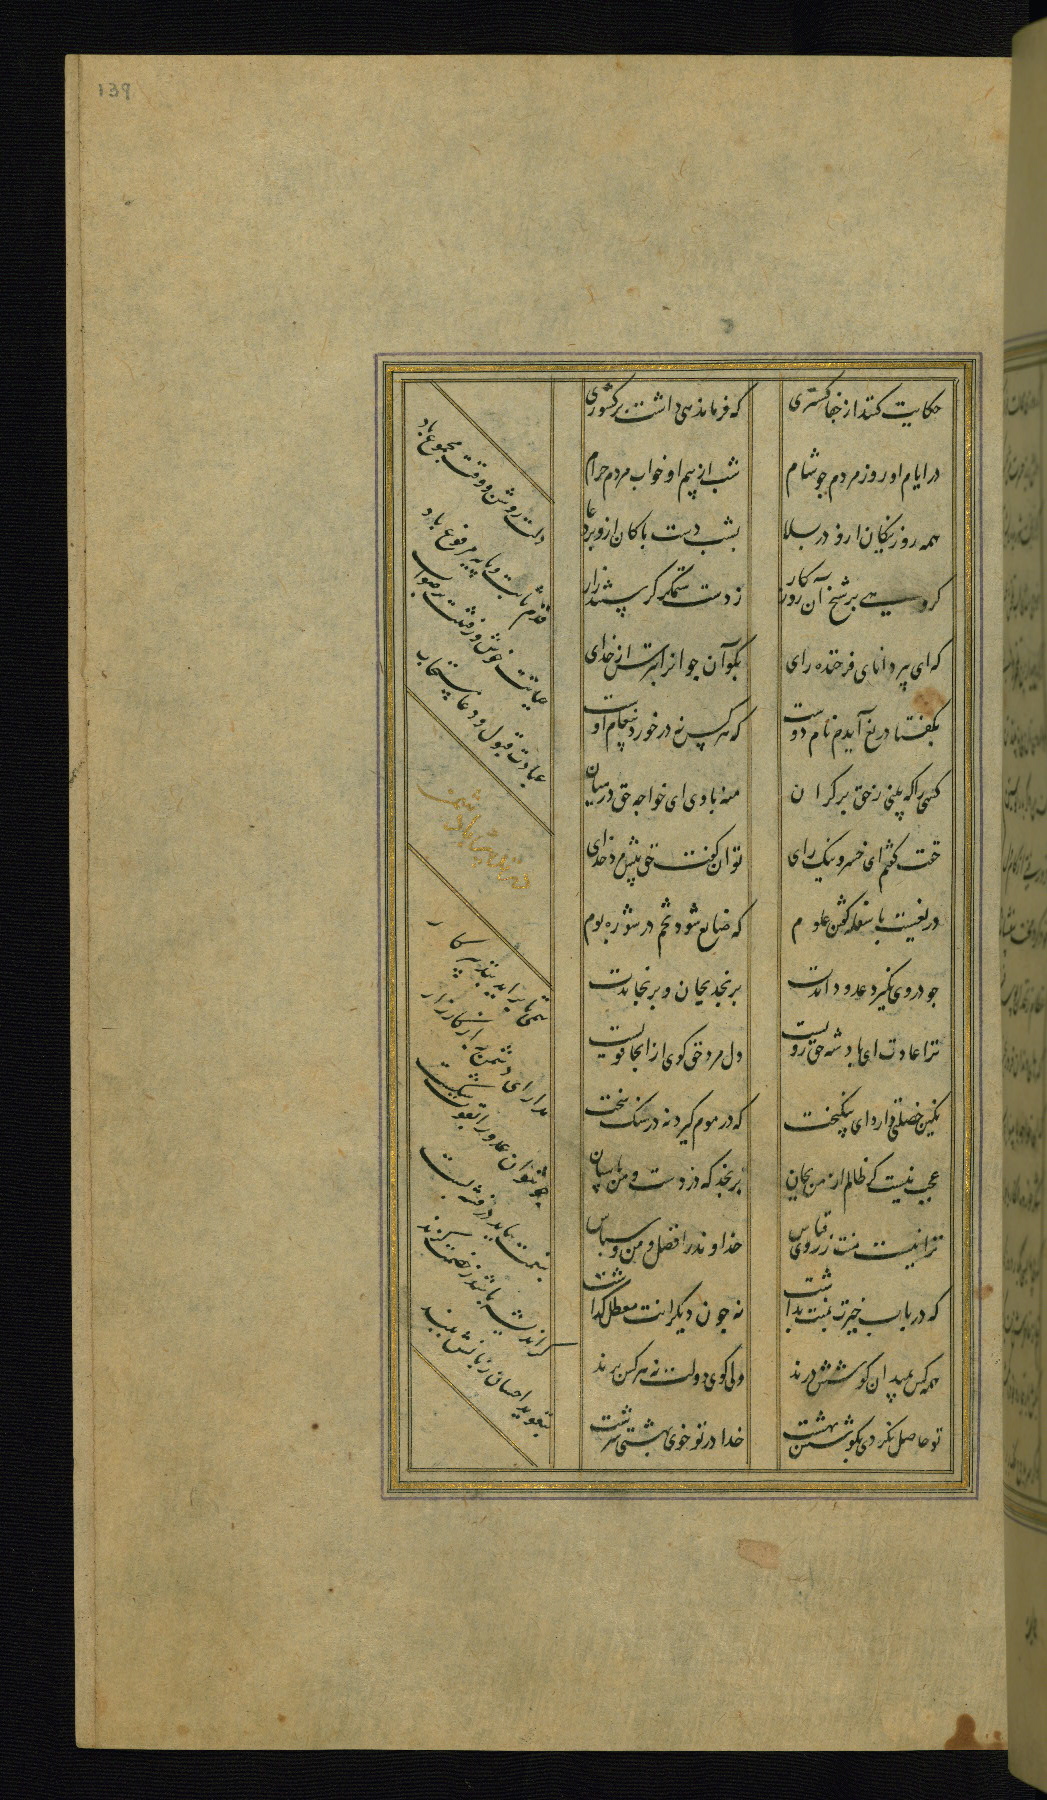 139
حکایت کنند از جفا کستری که فرماندهی داشت بر کشوری
در ایام او روز مردم جو شام شب از بیم او خواب مردم حرام
همه روز نیکان ازو در بلا بشب دست باکان ازو بر دعا
کروهی بر شیخ آن روزکار ز دست ستمکر کرستند زار
که ای پیر دانای فرخنده رای بکو آن جوانرا بترس از خدای
بکفتا دریغ آیدم نام دوست که هر کس نه در خورد پیغام اوست
کسی را که بینی ز حق بر کران منه با وی ای خواجه حق در میان
حقت کفتم ای خسرو نیک رای توان کفت حق پیش مرد خدای
دریغست با سفله کفتن علوم که ضایع شود تخم در شوره بوم
جو در وی نکیرد عدو داندت برنجد بجان و برنجاندت
ترا عادت ای بادشه حق رویست دل مرد حق کوی ازانجا قویست
نکین خصلتی دارد ای نیکبخت که در موم کیرد نه در سنک سخت
عجب نیست کر ظالم از من بجان برنجد که دزدست و من پاسبان
ترا نیست منت ز روی قیاس خداوند را فضل و من و سپاس
که در باب خیرت بخدمت بداشت نه جون دیکرانت معطل کذاشت
همه کس بمیدان کوشش درند ولی کوی دولت نه هر کس برند
تو حاصل نکردی بکوشش بهشت خدا در تو خوی بهشتی سرشت
دلت روشن و وقت مجموع باد
قدم ثابت و پایه مرفوع باد
حیاتت خوش و رفتنت بر صواب
عبادت قبول و دعا مستجاب
همی تا برآید بتدبیر کار
مدارای دشمن به از کارزار
جو نتوان عدو را بقوت شکست
بنعمت بباید در فتنه بست
کر اندیشه باشد ز خصمت کزند
بتعویذ احسان زبانش ببند